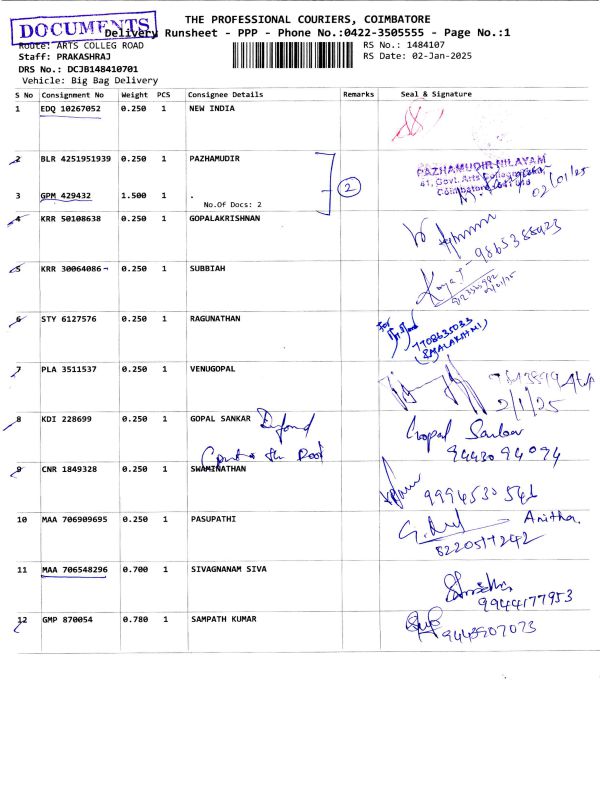 THE PROFESSIONAL COURIERS, COIMBATORE
DOCUMENTS
Delivery Runsheet - PPP - Phone No.:0422-3505555 - Page No.:1
Route: ARTS COLLEG ROAD
RS No.: 1484107
Staff: PRAKASHRAJ
RS Date: 02-Jan-2025
DRS No.: DCJB148410701
Vehicle: Big Bag Delivery
S No Consignment No Weight PCS Consignee Details Remarks Seal & Signature
1 EDQ 10267052 0.250 1 NEW INDIA
2 BLR 4251951939 0.250 1 PAZHAMUDIR
PAZHAMUDIR NILAYAM
41, Govt. Arts College Road
Coimbatore
02/01/25
3 GPM 429432 1.500 1 .
No.Of Docs: 2
2
4 KRR 50108638 0.250 1 GOPALAKRISHNAN
5 KRR 30064086 0.250 1 SUBBIAH
6 STY 6127576 0.250 1 RAGUNATHAN
For
7708635033
7 PLA 3511537 0.250 1 VENUGOPAL
2/1/25
8 KDI 228699 0.250 1 GOPAL SANKAR
Gopal Sankar
9443094094
9 CNR 1849328 0.250 1 SWAMINATHAN
9994530541
10 MAA 706909695 0.250 1 PASUPATHI
Anitha
11 MAA 706548296 0.700 1 SIVAGNANAM SIVA
9944177953
12 GMP 870054 0.780 1 SAMPATH KUMAR
9443507073